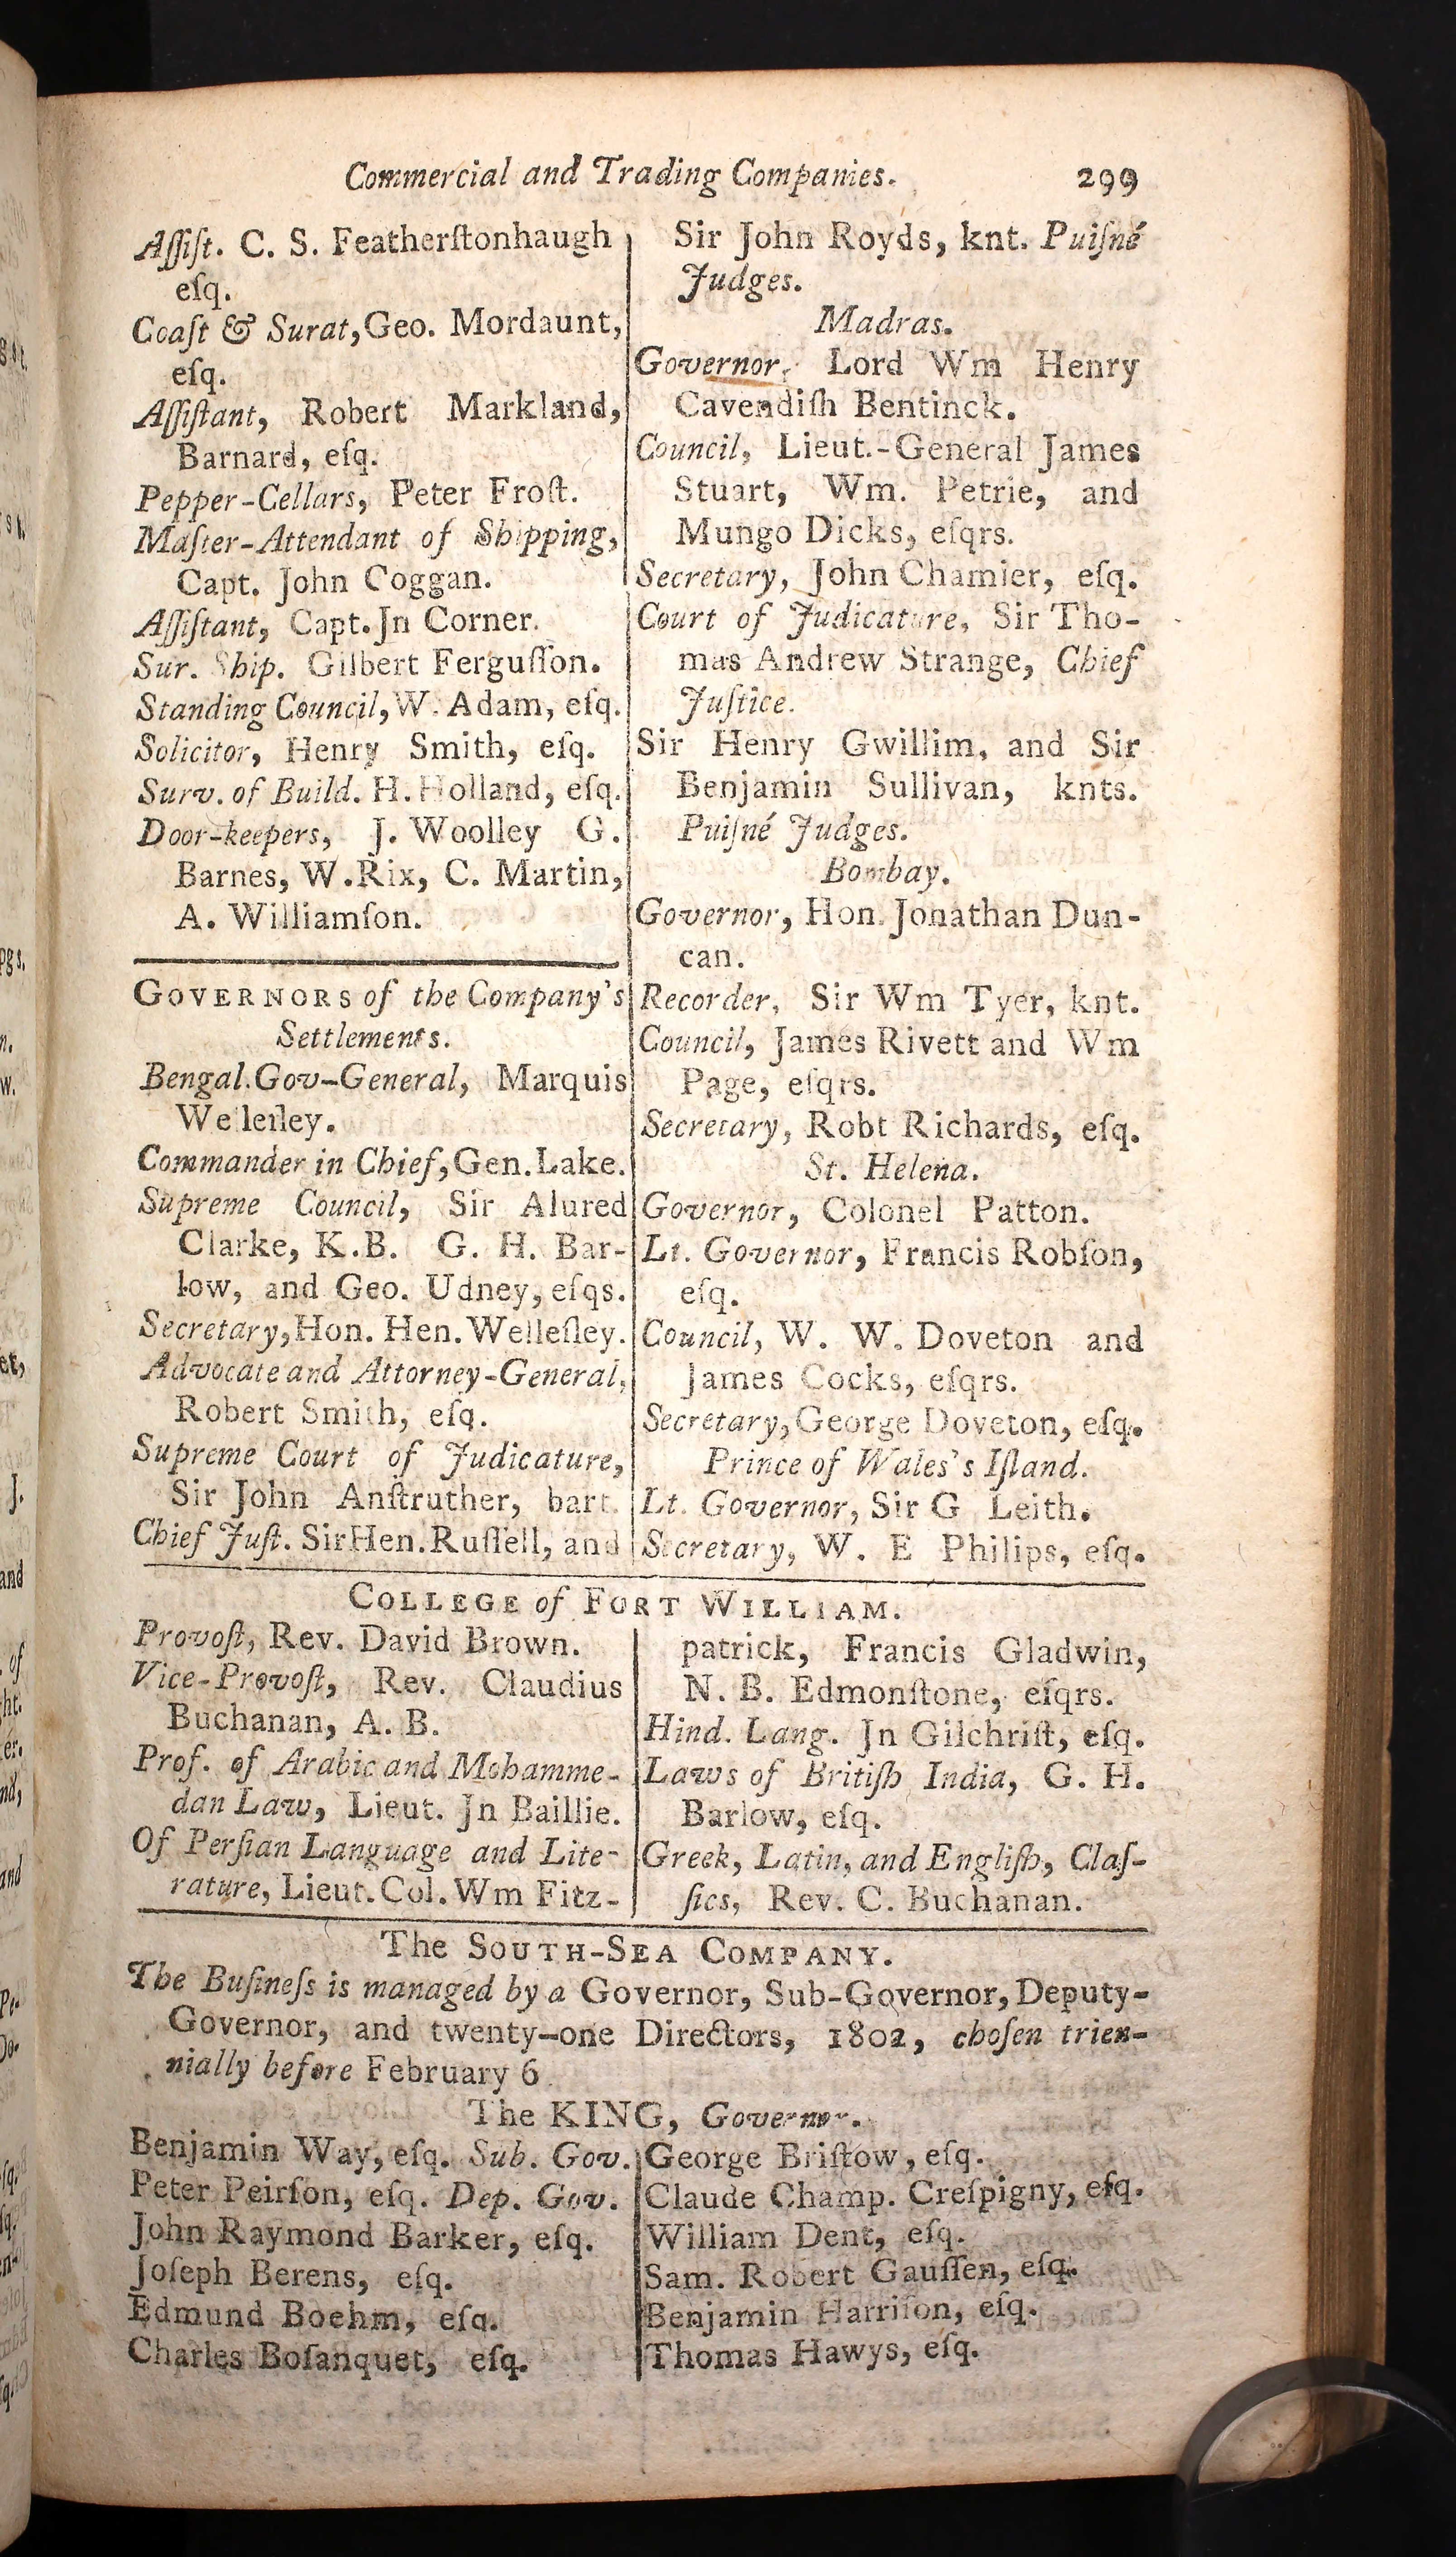 Commercial and Trading Companies. 299
Aſſiſt. C. S. Featherſtonhaugh
eſq.
Coaſt & Surat, Geo. Mordaunt,
eſq.
Aſſiſtant, Robert Markland,
Barnard, eſq.
Pepper-Cellars, Peter Froſt.
Maſter-Attendant of Shipping,
Capt. John Coggan.
Aſſiſtant, Capt. Jn Corner.
Sur. Ship. Gilbert Ferguſſon.
Standing Council, W. Adam, eſq.
Solicitor, Henry Smith, eſq.
Surv. of Build. H. Holland, eſq.
Door-keepers, J. Woolley G.
Barnes, W. Rix, C. Martin,
A. Williamſon.
GOVERNORS of the Company's
Settlements.
Bengal. Gov-General, Marquis
Welleſley.
Commander in Chief, Gen. Lake.
Supreme Council, Sir Alured
Clarke, K.B. G. H. Bar-
low, and Geo. Udney, eſqs.
Secretary, Hon. Hen. Welleſley.
Advocate and Attorney-General,
Robert Smith, eſq.
Supreme Court of Judicature,
Sir John Anſtruther, bart.
Chief Juſt. Sir Hen. Ruſſell, and
Sir John Royds, knt. Puiſné
Judges.
Madras.
Governor, Lord Wm Henry
Cavendiſh Bentinck.
Council, Lieut.-General James
Stuart, Wm. Petrie, and
Mungo Dicks, eſqrs.
Secretary, John Chamier, eſq.
Court of Judicature, Sir Tho-
mas Andrew Strange, Chief
Juſtice.
Sir Henry Gwillim, and Sir
Benjamin Sullivan, knts.
Puiſné Judges.
Bombay.
Governor, Hon. Jonathan Dun-
can.
Recorder, Sir Wm Tyer, knt.
Council, James Rivett and Wm
Page, eſqrs.
Secretary, Robt Richards, eſq.
St. Helena.
Governor, Colonel Patton.
Lt. Governor, Francis Robſon,
eſq.
Council, W. W. Doveton and
James Cocks, eſqrs.
Secretary, George Doveton, eſq.
Prince of Wales's Iſland.
Lt. Governor, Sir G Leith.
Secretary, W. E Philips, eſq.
COLLEGE of FORT WILLIAM.
Provoſt, Rev. David Brown.
Vice-Provoſt, Rev. Claudius
Buchanan, A. B.
Prof. of Arabic and Mohamme-
dan Law, Lieut. Jn Baillie.
Of Perſian Language and Lite-
rature, Lieut. Col. Wm Fitz-
patrick, Francis Gladwin,
N. B. Edmonſtone, eſqrs.
Hind. Lang. Jn Gilchriſt, eſq.
Laws of Britiſh India, G. H.
Barlow, eſq.
Greek, Latin, and Engliſh, Claſ-
ſics, Rev. C. Buchanan.
The SOUTH-SEA COMPANY.
The Buſineſs is managed by a Governor, Sub-Governor, Deputy-
Governor, and twenty-one Directors, 1802, choſen trien-
nially before February 6
The KING, Governor.
Benjamin Way, eſq. Sub. Gov.
Peter Peirſon, eſq. Dep. Gov.
John Raymond Barker, eſq.
Joſeph Berens, eſq.
Edmund Boehm, eſq.
Charles Boſanquet, eſq.
George Briſtow, eſq.
Claude Champ. Creſpigny, eſq.
William Dent, eſq.
Sam. Robert Gauſſen, eſq.
Benjamin Harriſon, eſq.
Thomas Hawys, eſq.